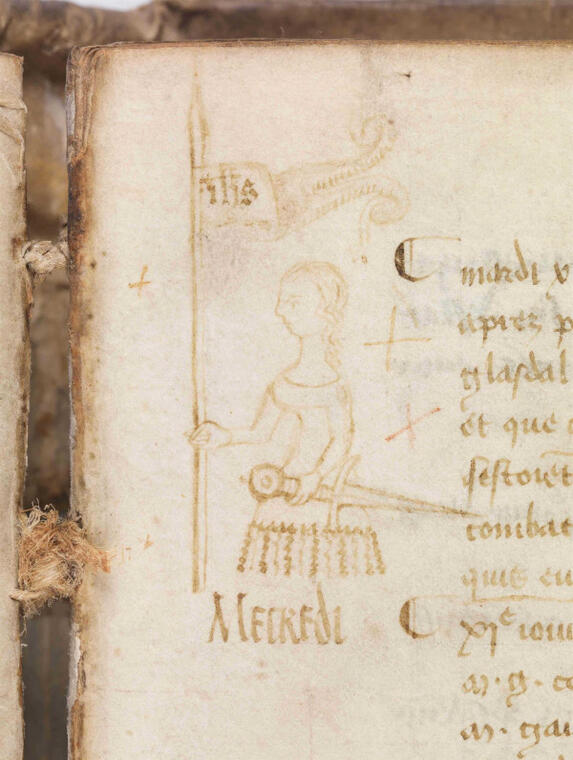 ihs
mardi x
aprez p
glasdal
et que
sestoiet
combat
quis eu
Mecredi
xi^e iou
m. g. co
m. gau